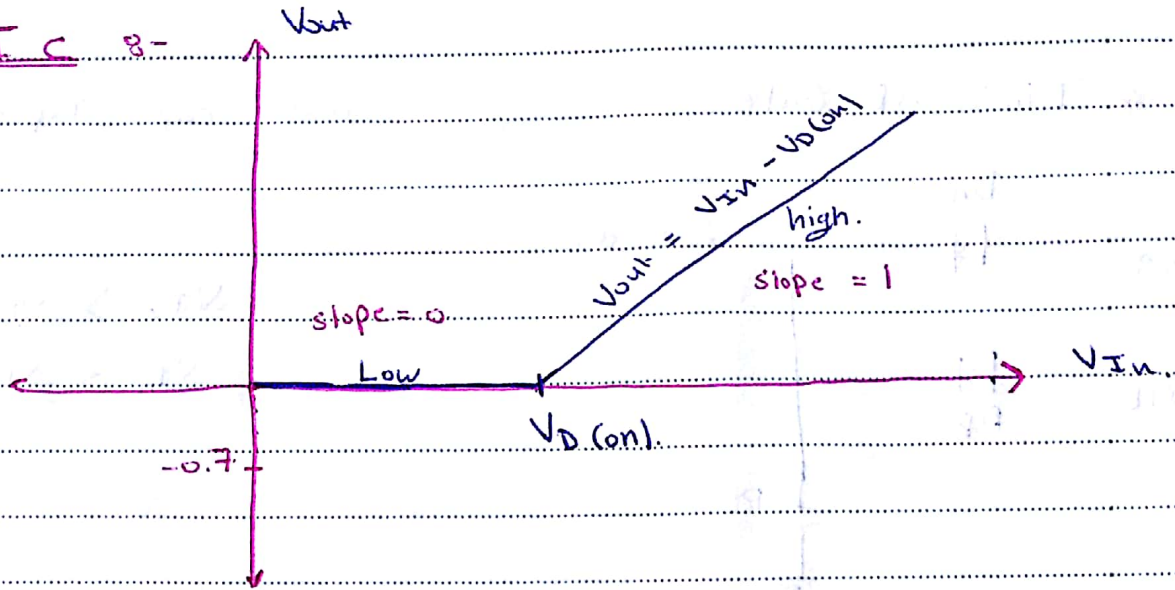 Vout
T C :-
Vout = VIn - VD(on)
high.
slope = 1
slope = 0
Low
VIn.
VD (on).
-0.7